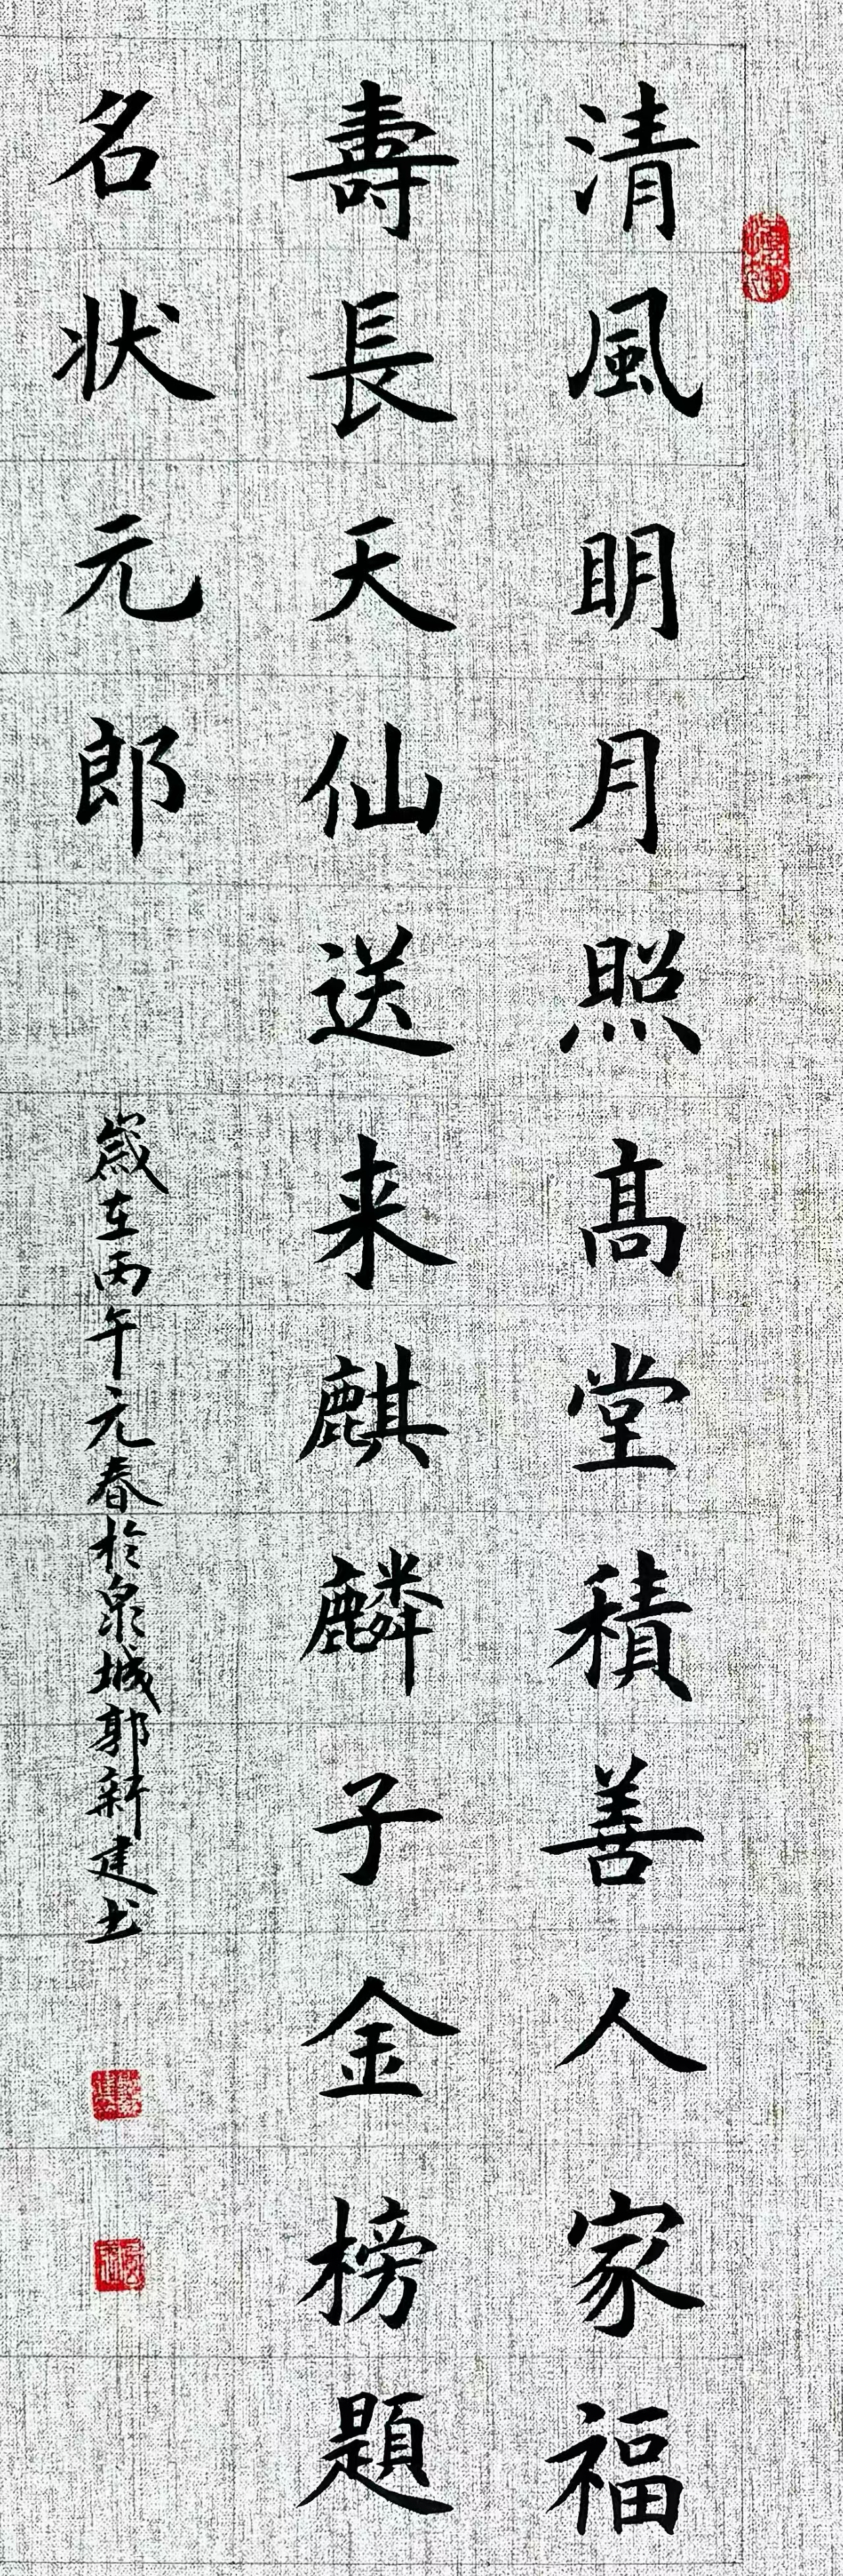 清風明月照高堂積善人家福
壽長天仙送来麒麟子金榜題
名状元郎
歲在丙午元春於泉城郭新建书